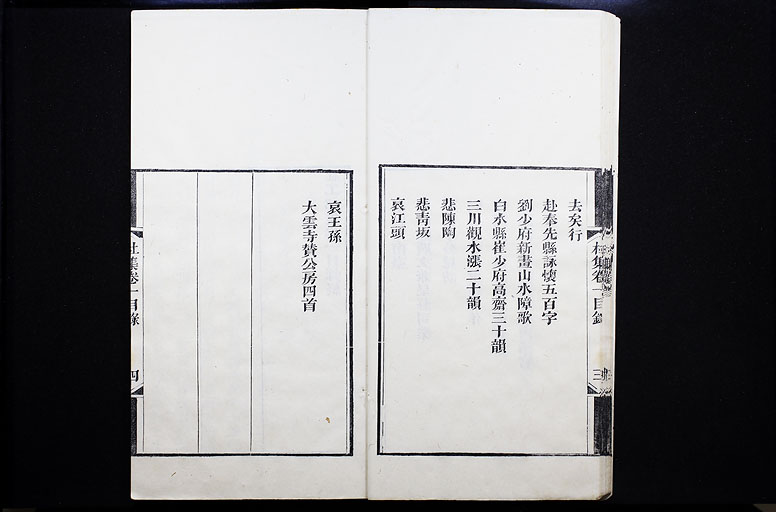 去矣行
赴奉先縣詠懷五百字
劉少府新畫山水障歌
白水縣崔少府高齋三十韻
三川觀水漲二十韻
悲陳陶
悲青坂
哀江頭
杜集卷一目錄
三
哀王孫
大雲寺贊公房四首
杜集卷一目錄
四